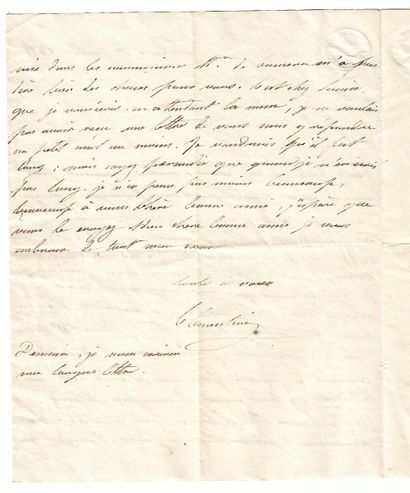 mis dans les commissions Mr. de
dire bien des choses pour vous. C'est chez Louise
que je vous écris en attendant la messe, je ne voulais
pas avoir recu une lettre de vous sans y répondre
un petit mot au moins. Je voudrais qu'il fut
long; mais soyez persuadée que quand je n'écris
pas long je n'en pense pas moins beaucoup,
beaucoup à vous chère bonne amie, j'espère que
vous le croyez Adieu chère bonne amie je vous
embrasse de tout mon cœur
toute à vous
Clémentine
Demain, je vous écrirai
une longue lettre.